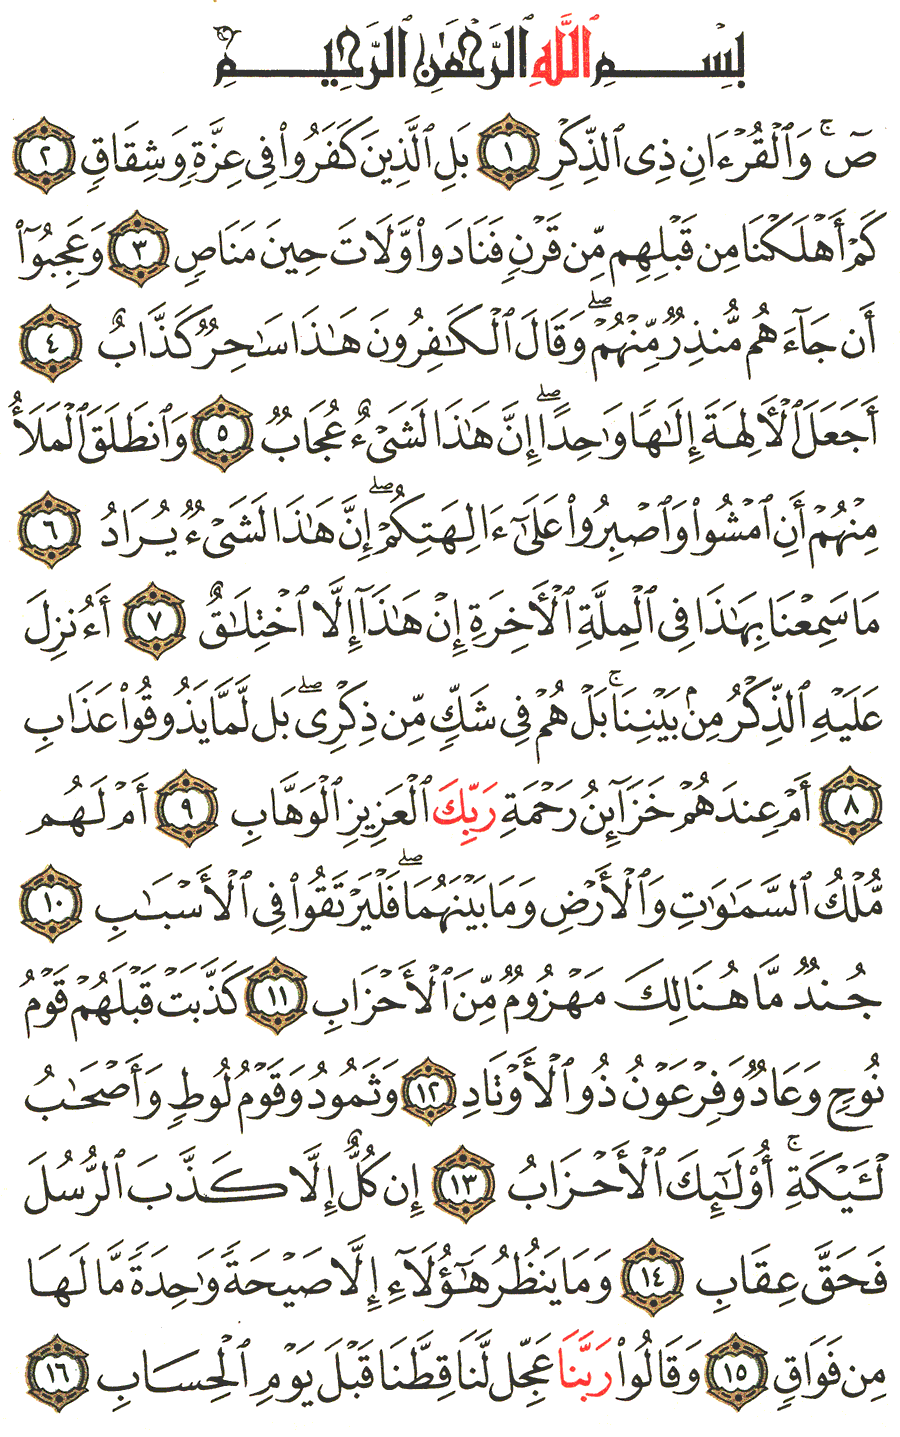 بِسْمِ ٱللَّهِ ٱلرَّحْمَٰنِ ٱلرَّحِيمِ
صٓ ۚ وَٱلْقُرْءَانِ ذِى ٱلذِّكْرِ ١ بَلِ ٱلَّذِينَ كَفَرُوا۟ فِى عِزَّةٍ وَشِقَاقٍ ٢
كَمْ أَهْلَكْنَا مِن قَبْلِهِم مِّن قَرْنٍ فَنَادَوا۟ وَّلَاتَ حِينَ مَنَاصٍ ٣ وَعَجِبُوٓا۟
أَن جَآءَهُم مُّنذِرٌ مِّنْهُمْ ۖ وَقَالَ ٱلْكَٰفِرُونَ هَٰذَا سَٰحِرٌ كَذَّابٌ ٤
أَجَعَلَ ٱلْأَلِهَةَ إِلَٰهًا وَٰحِدًا ۖ إِنَّ هَٰذَا لَشَىْءٌ عُجَابٌ ٥ وَٱنطَلَقَ ٱلْمَلَأُ
مِنْهُمْ أَنِ ٱمْشُوا۟ وَٱصْبِرُوا۟ عَلَىٰٓ ءَالِهَتِكُمْ ۖ إِنَّ هَٰذَا لَشَىْءٌ يُرَادُ ٦
مَا سَمِعْنَا بِهَٰذَا فِى ٱلْمِلَّةِ ٱلْأَخِرَةِ إِنْ هَٰذَآ إِلَّا ٱخْتِلَٰقٌ ٧ أَءُنزِلَ
عَلَيْهِ ٱلذِّكْرُ مِنۢ بَيْنِنَا ۚ بَلْ هُمْ فِى شَكٍّ مِّن ذِكْرِى ۖ بَل لَّمَّا يَذُوقُوا۟ عَذَابِ
٨ أَمْ عِندَهُمْ خَزَآئِنُ رَحْمَةِ رَبِّكَ ٱلْعَزِيزِ ٱلْوَهَّابِ ٩ أَمْ لَهُم
مُّلْكُ ٱلسَّمَٰوَٰتِ وَٱلْأَرْضِ وَمَا بَيْنَهُمَا ۖ فَلْيَرْتَقُوا۟ فِى ٱلْأَسْبَٰبِ ١٠
جُندٌ مَّا هُنَالِكَ مَهْزُومٌ مِّنَ ٱلْأَحْزَابِ ١١ كَذَّبَتْ قَبْلَهُمْ قَوْمُ
نُوحٍ وَعَادٌ وَفِرْعَوْنُ ذُو ٱلْأَوْتَادِ ١٢ وَثَمُودُ وَقَوْمُ لُوطٍ وَأَصْحَٰبُ
لْـَٔيْكَةِ ۚ أُو۟لَٰٓئِكَ ٱلْأَحْزَابُ ١٣ إِن كُلٌّ إِلَّا كَذَّبَ ٱلرُّسُلَ
فَحَقَّ عِقَابِ ١٤ وَمَا يَنظُرُ هَٰٓؤُلَآءِ إِلَّا صَيْحَةً وَٰحِدَةً مَّا لَهَا
مِن فَوَاقٍ ١٥ وَقَالُوا۟ رَبَّنَا عَجِّل لَّنَا قِطَّنَا قَبْلَ يَوْمِ ٱلْحِسَابِ ١٦